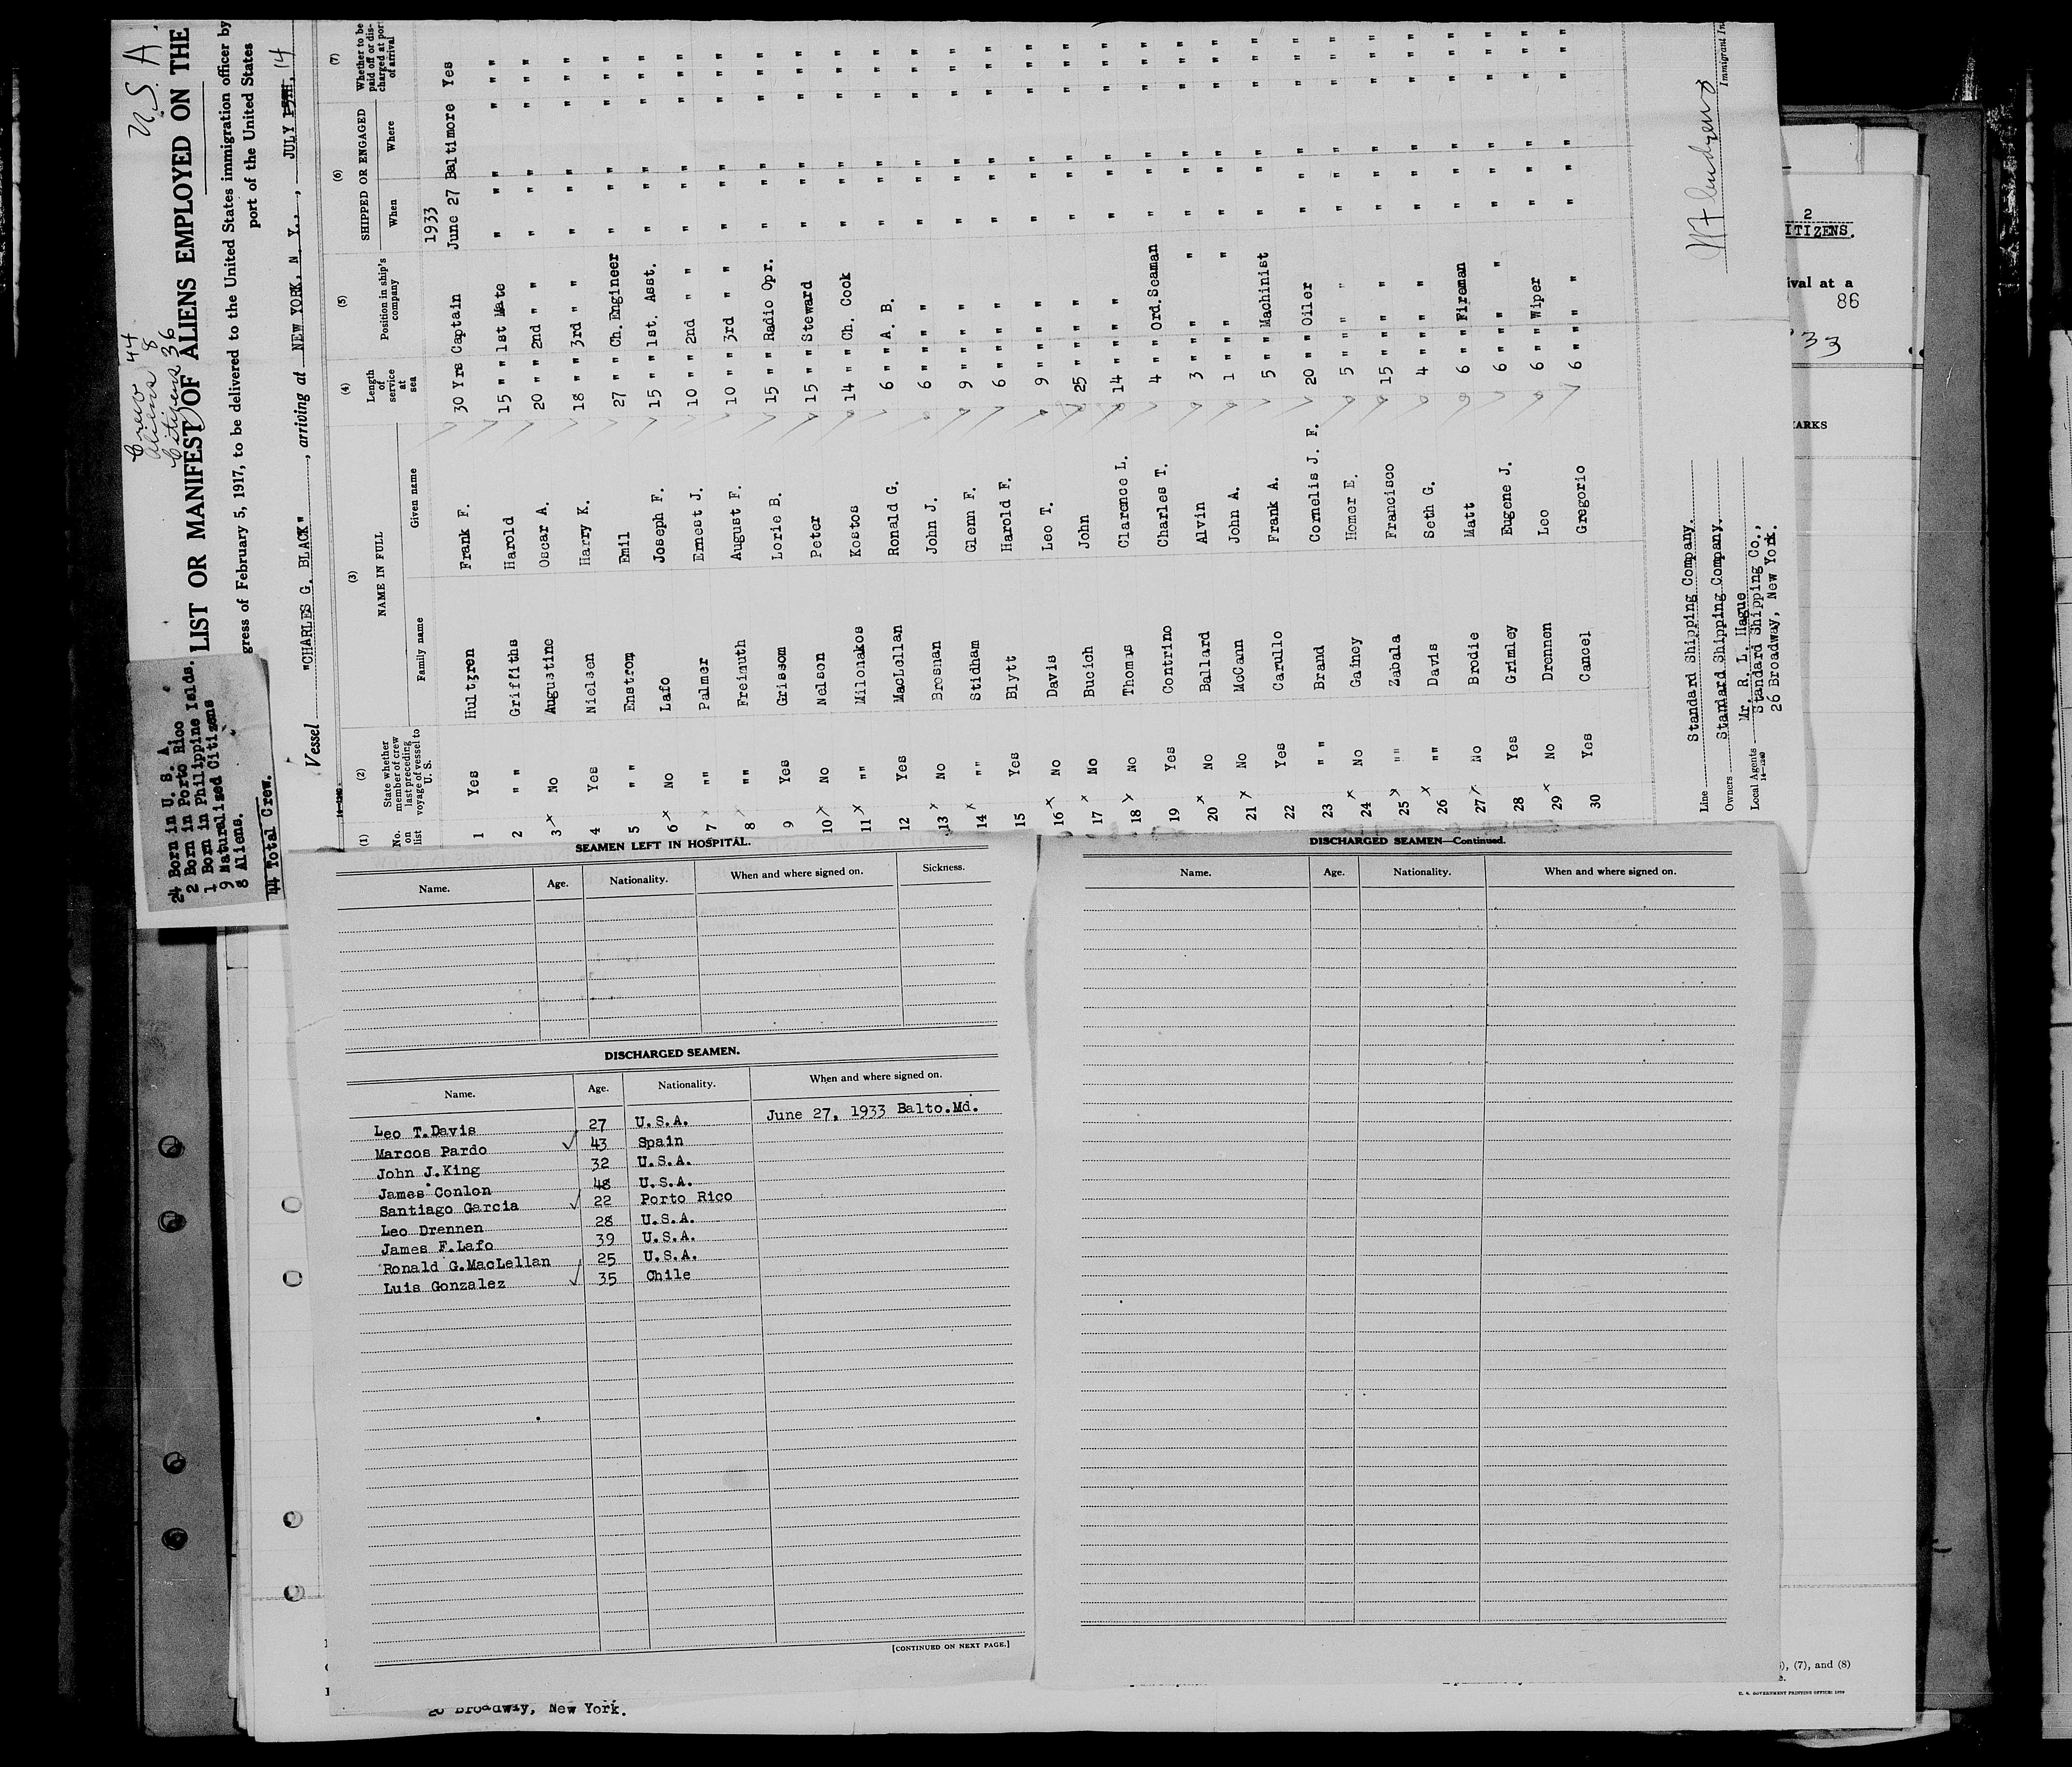 U.S.A.
Crew 44
Aliens 8
Citizens 36
LIST OR MANIFEST OF ALIENS EMPLOYED ON THE
gress of February 5, 1917, to be delivered to the United States immigration officer by
port of the United States
Vessel "CHARLES G. BLACK", arriving at NEW YORK, N. Y., , JULY 15TH, 14
24 Born in U. S. A.
2 Born in Porto Rico
1 Born in Philippine Islds.
9 Naturalized Citizens
8 Aliens.
44 Total Crew.
(1) (2) (3) (4) (5) (6) (7)
No. on list
State whether member of crew last preceding voyage of vessel to U. S.
NAME IN FULL
Family name Given name
Length of service at sea
Position in ship's company
SHIPPED OR ENGAGED
When Where
Whether to be paid off or discharged at port of arrival
1933
1 Yes Hultgren Frank F. 30 Yrs Captain June 27 Baltimore Yes
2 " " Griffiths Harold 15 " " 1st Mate " " " " " "
3 x No Augustine Oscar A. 20 " " 2nd " " " " " " " "
4 Yes Nielsen Harry K. 18 " " 3rd " " " " " " " "
5 " " Enstrom Emil 27 " " Ch. Engineer " " " " " "
6 x No Lafo Joseph F. 15 " " 1st. Asst. " " " " " "
7 x "" Palmer Ernest J. 10 " " 2nd " " " " " " " "
8 x "" Freimuth August F. 10 " " 3rd " " " " " " " "
9 Yes Grissom Lorie B. 15 " " Radio Opr. " " " " " "
10 x No Nelson Peter 15 " " Steward " " " " " "
11 x "" Milonakos Kostos 14 " " Ch. Cook " " " " " "
12 Yes MacLellan Ronald G. 6 " " A. B. " " " " " "
13 x No Brosnan John J. 6 " " " " " " " " " "
14 x "" Stidham Glenn F. 9 " " " " " " " " " "
15 Yes Blytt Harold F. 6 " " " " " " " " " "
16 x No Davis Leo T. 9 " " " " " " " " " "
17 x No Bucich John 25 " " " " " " " " " "
18 x No Thomas Clarence L. 14 " " " " " " " " " "
19 Yes Contrino Charles T. 4 " " Ord. Seaman " " " " " "
20 x No Ballard Alvin 3 " " " " " " " " "
21 x No McCann John A. 1 " " " " " " " " "
22 Yes Carullo Frank A. 5 " " Machinist " " " " " "
23 " " Brand Cornelis J. F. 20 " " Oiler " " " " " "
24 x No Gainey Homer E. 5 " " " " " " " " " "
25 x "" Zabala Francisco 15 " " " " " " " " " "
26 x "" Davis Seth G. 4 " " " " " " " " " "
27 x No Brodie Matt 6 " " Fireman " " " " " "
28 Yes Grimley Eugene J. 6 " " " " " " " " "
29 x No Drennen Leo 6 " " Wiper " " " " " "
30 Yes Cancel Gregorio 6 " " " " " " " " " "
Line Standard Shipping Company.
Owners Standard Shipping Company.
Local Agents Mr. R. L. Hague
Standard Shipping Co.,
26 Broadway, New York.
Immigrant In
2
ITIZENS.
ival at a
86
33
ARKS
SEAMEN LEFT IN HOSPITAL.
Name. Age. Nationality. When and where signed on. Sickness.
DISCHARGED SEAMEN.
Name. Age. Nationality. When and where signed on.
Leo T.Davis 27 U.S.A. June 27, 1933 Balto.Md.
Marcos Pardo ✓ 43 Spain
John J.King 32 U.S.A.
James Conlon 48 U.S.A.
Santiago Garcia ✓ 22 Porto Rico
Leo Drennen 28 U.S.A.
James F.Lafo 39 U.S.A.
Ronald G.MacLellan 25 U.S.A.
Luis Gonzalez ✓ 35 Chile
[CONTINUED ON NEXT PAGE.]
DISCHARGED SEAMEN—Continued.
Name. Age. Nationality. When and where signed on.
Broadway, New York.
, (7), and (8)
U. S. GOVERNMENT PRINTING OFFICE: